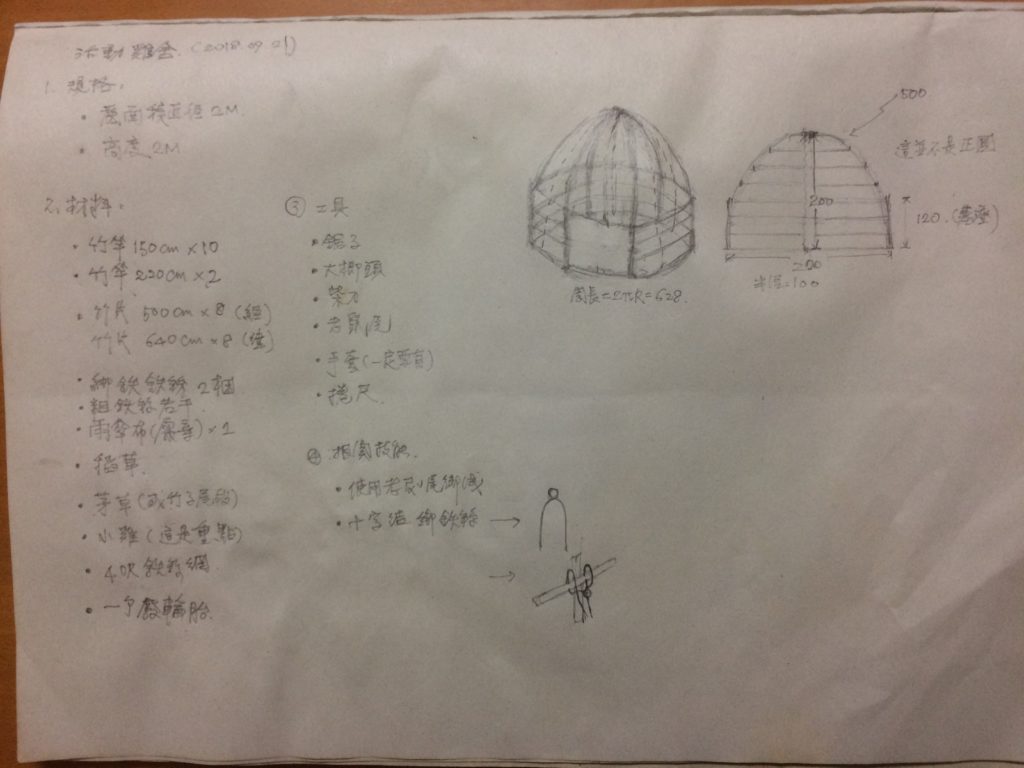 活動雞舍 (2018.09.21)
1. 規格。
• 底面積直徑 2M
• 高度 2M
2. 材料。
• 竹竿 150cm × 10
• 竹竿 220cm × 2
• 竹片 500cm × 8 (經)
竹片 640cm × 8 (緯)
• 綁鉄鉄絲 2捆
• 粗鉄絲若干
• 雨傘布(廣告) × 1
• 稻草
• 茅草 (或竹子尾
• 小雞 (這是重點)
• 4呎鉄絲網
• 一个廢輪胎
③ 工具
• 鋸子
• 大榔頭
• 柴刀
• 老鼠尾
• 手套 (一定要有)
• 捲尺
④ 相關技能
• 使用老鼠尾綁
• 十字法綁鉄絲 →
→
周長=2πR=628
500
這並不是正圓
200
120.
200
半徑=100